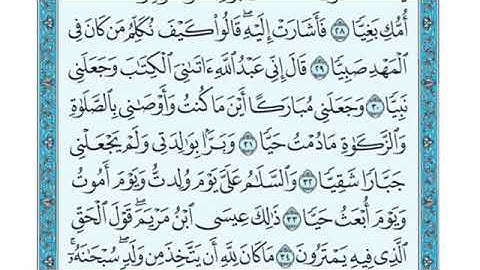 أُمُّكِ بَغِيًّا ٢٨ فَأَشَارَتْ إِلَيْهِ ۖ قَالُوا۟ كَيْفَ نُكَلِّمُ مَن كَانَ فِى
ٱلْمَهْدِ صَبِيًّا ٢٩ قَالَ إِنِّى عَبْدُ ٱللَّهِ ءَاتَىٰنِىَ ٱلْكِتَٰبَ وَجَعَلَنِى
نَبِيًّا ٣٠ وَجَعَلَنِى مُبَارَكًا أَيْنَ مَا كُنتُ وَأَوْصَٰنِى بِٱلصَّلَوٰةِ
وَٱلزَّكَوٰةِ مَا دُمْتُ حَيًّا ٣١ وَبَرًّۢا بِوَٰلِدَتِى وَلَمْ يَجْعَلْنِى
جَبَّارًا شَقِيًّا ٣٢ وَٱلسَّلَٰمُ عَلَىَّ يَوْمَ وُلِدتُّ وَيَوْمَ أَمُوتُ
وَيَوْمَ أُبْعَثُ حَيًّا ٣٣ ذَٰلِكَ عِيسَى ٱبْنُ مَرْيَمَ ۚ قَوْلَ ٱلْحَقِّ
ٱلَّذِى فِيهِ يَمْتَرُونَ ٣٤ مَا كَانَ لِلَّهِ أَن يَتَّخِذَ مِن وَلَدٍ ۖ سُبْحَٰنَهُۥٓ ۚ